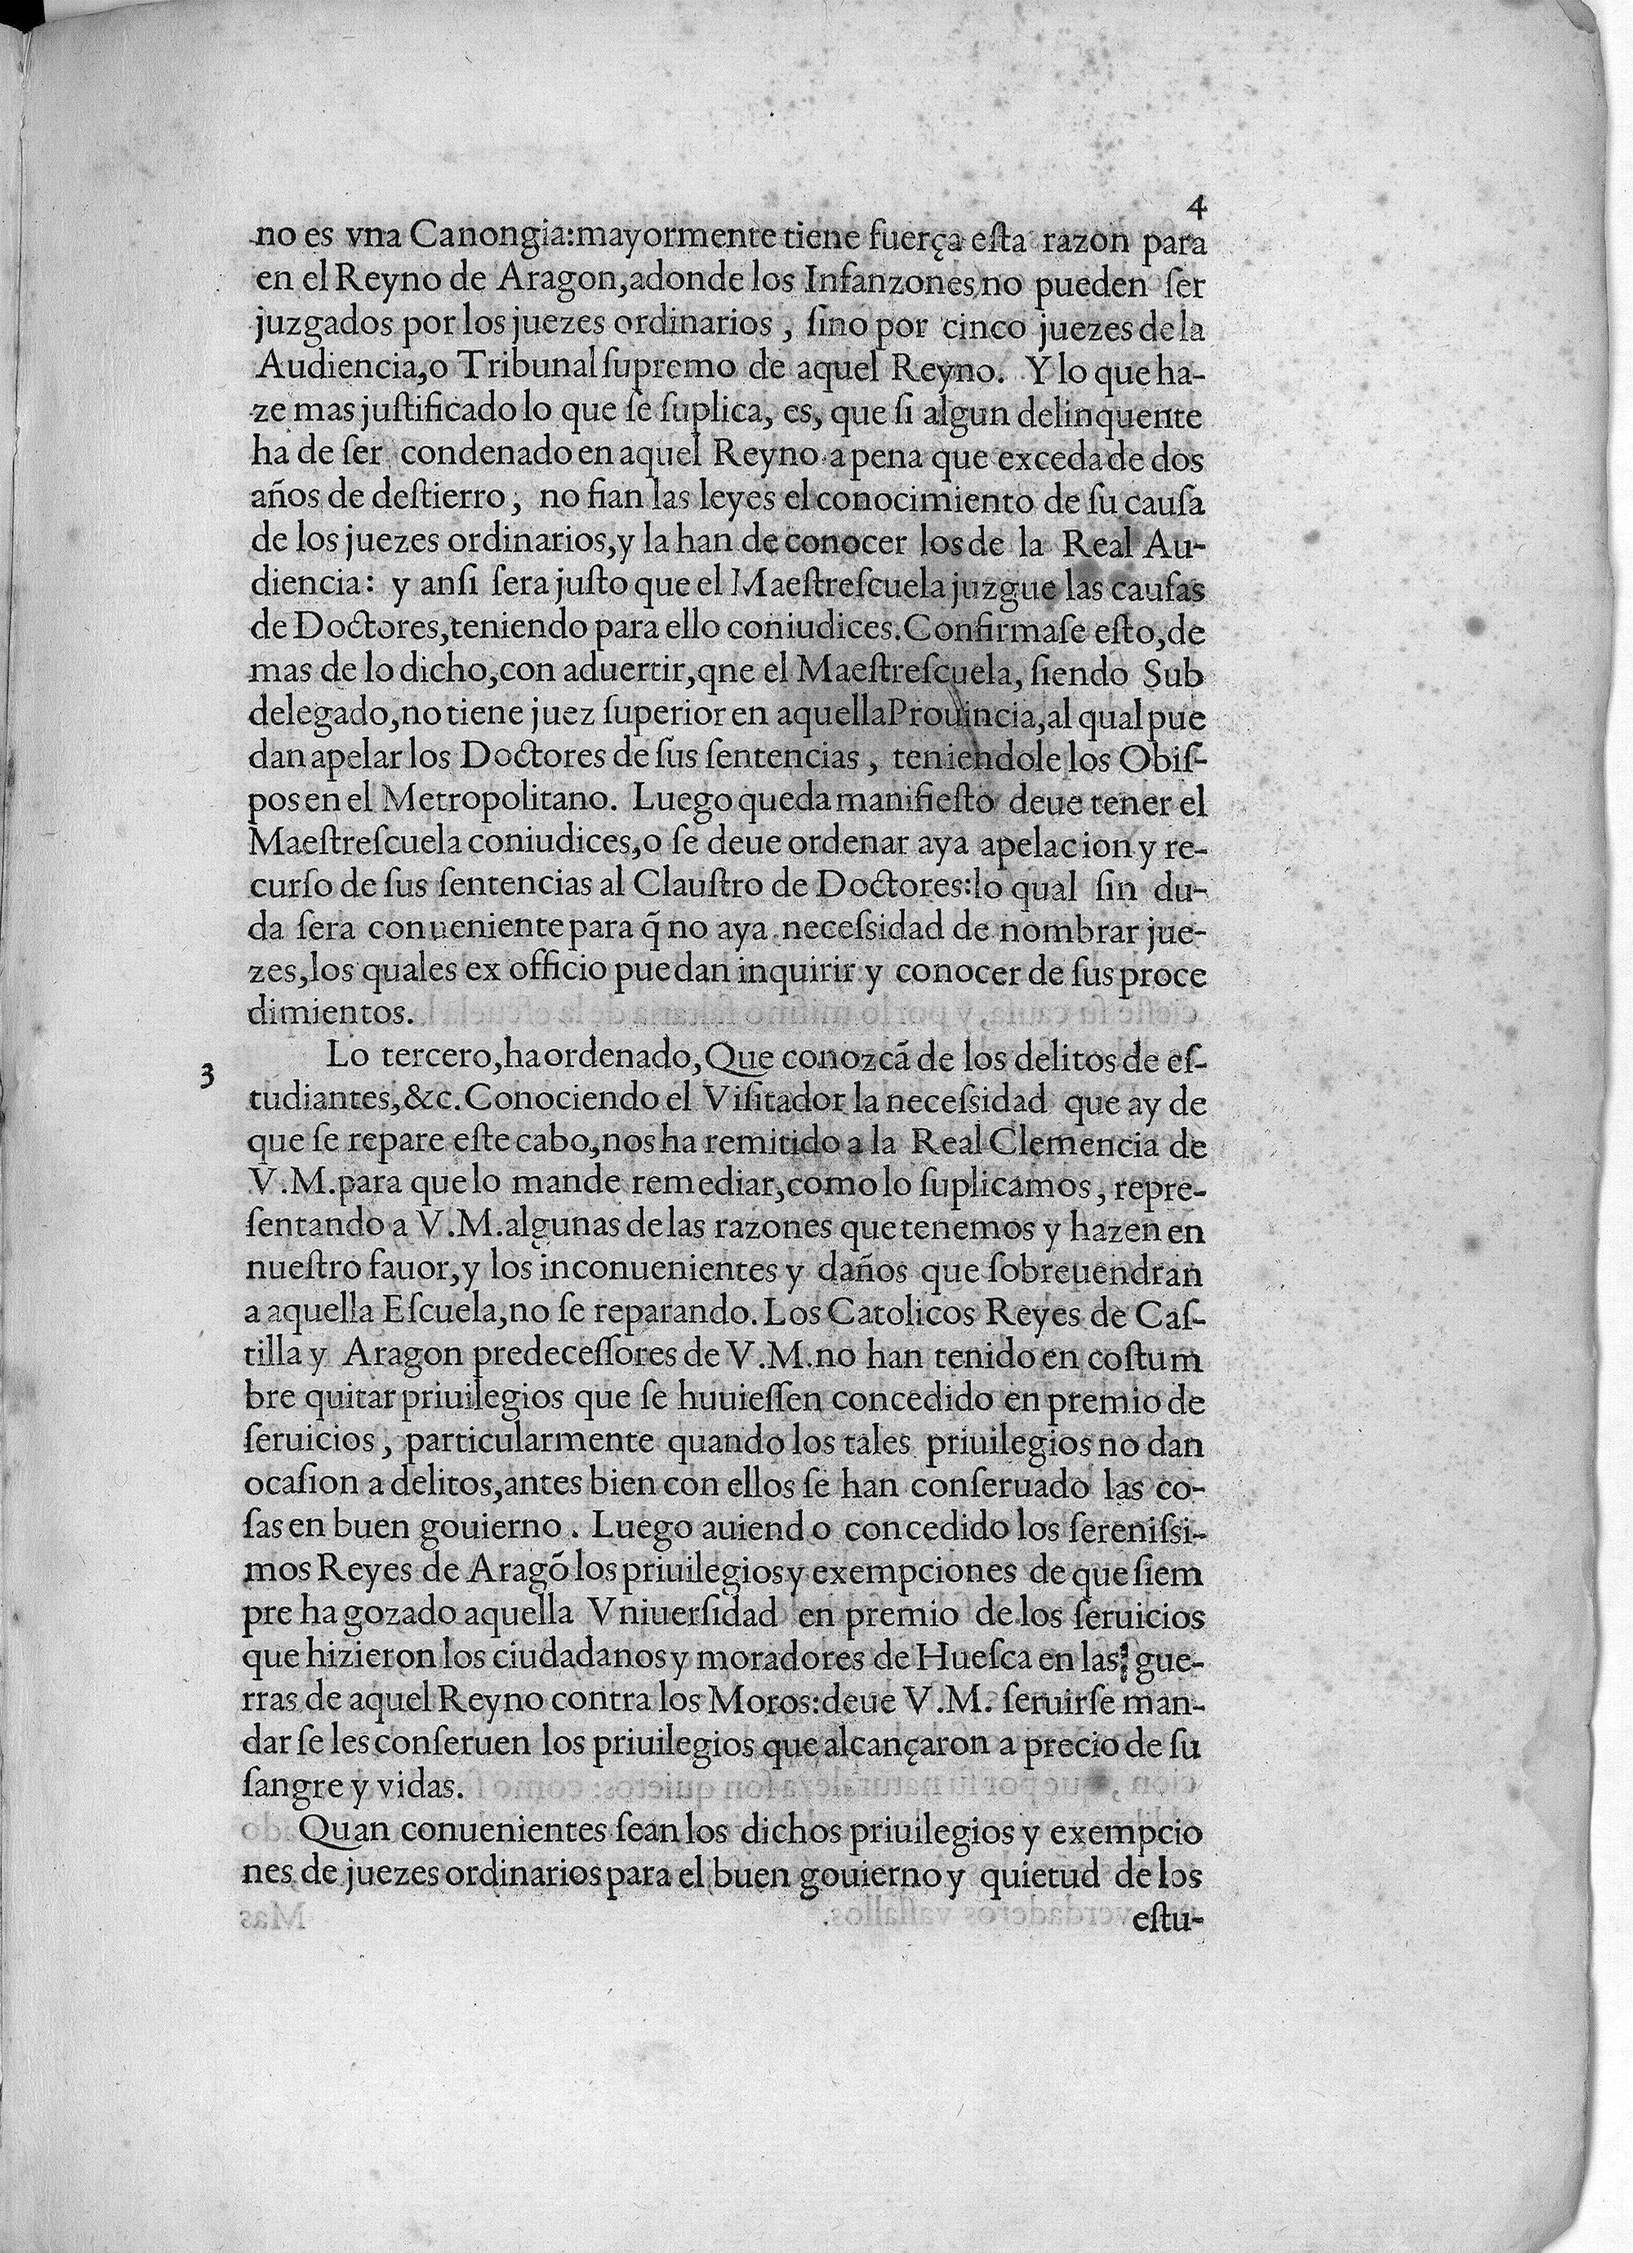 4
no es vna Canongia:mayormente tiene fuerça eſta razon para
en el Reyno de Aragon,adonde los Infanzones no pueden ſer
juzgados por los juezes ordinarios, ſino por cinco juezes de la
Audiencia,o Tribunal ſupremo de aquel Reyno. Y lo que ha-
ze mas juſtificado lo que ſe ſuplica, es, que ſi algun delinquente
ha de ſer condenado en aquel Reyno a pena que exceda de dos
años de deſtierro, no fian las leyes el conocimiento de ſu cauſa
de los juezes ordinarios,y la han de conocer los de la Real Au-
diencia: y anſi ſera juſto que el Maeſtreſcuela juzgue las cauſas
de Doctores,teniendo para ello coniudices.Confirmaſe eſto,de
mas de lo dicho,con aduertir,qne el Maeſtreſcuela, ſiendo Sub
delegado,no tiene juez ſuperior en aquella Prouincia,al qual pue
dan apelar los Doctores de ſus ſentencias, teniendole los Obiſ-
pos en el Metropolitano. Luego queda manifieſto deue tener el
Maeſtreſcuela coniudices,o ſe deue ordenar aya apelacion y re-
curſo de ſus ſentencias al Clauſtro de Doctores:lo qual ſin du-
da ſera conueniente para q̃ no aya neceſsidad de nombrar jue-
zes,los quales ex officio puedan inquirir y conocer de ſus proce
dimientos.
3 Lo tercero,ha ordenado,Que conozcã de los delitos de eſ-
tudiantes,&c.Conociendo el Viſitador la neceſsidad que ay de
que ſe repare eſte cabo,nos ha remitido a la Real Clemencia de
V.M.para que lo mande remediar,como lo ſuplicamos, repre-
ſentando a V.M.algunas de las razones que tenemos y hazen en
nueſtro fauor,y los inconuenientes y daños que ſobreuendran
a aquella Eſcuela,no ſe reparando.Los Catolicos Reyes de Caſ-
tilla y Aragon predeceſſores de V.M.no han tenido en coſtum
bre quitar priuilegios que ſe huuieſſen concedido en premio de
ſeruicios, particularmente quando los tales priuilegios no dan
ocaſion a delitos,antes bien con ellos ſe han conſeruado las co-
ſas en buen gouierno. Luego auiendo concedido los ſereniſsi-
mos Reyes de Aragõ los priuilegios y exempciones de que ſiem
pre ha gozado aquella Vniuerſidad en premio de los ſeruicios
que hizieron los ciudadanos y moradores de Hueſca en las gue-
rras de aquel Reyno contra los Moros:deue V.M. ſeruirſe man-
dar ſe les conſeruen los priuilegios que alcançaron a precio de ſu
ſangre y vidas.
Quan conuenientes ſean los dichos priuilegios y exempcio
nes de juezes ordinarios para el buen gouierno y quietud de los
eſtu-